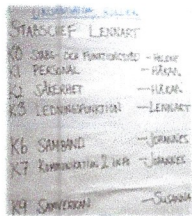 STABSCHEF LENNART
K0 STABS- OCH FUNKTIONSSTÖD - HELENE
K1 PERSONAL - HÅKAN
K2 SÄKERHET - HÅKAN
K3 LEDNINGSFUNKTION - LENNART
K6 SAMBAND - JOHANNES
K7 KOMMUNIKATION & INFO - JOHANNES
K9 SAMVERKAN - SUSANN